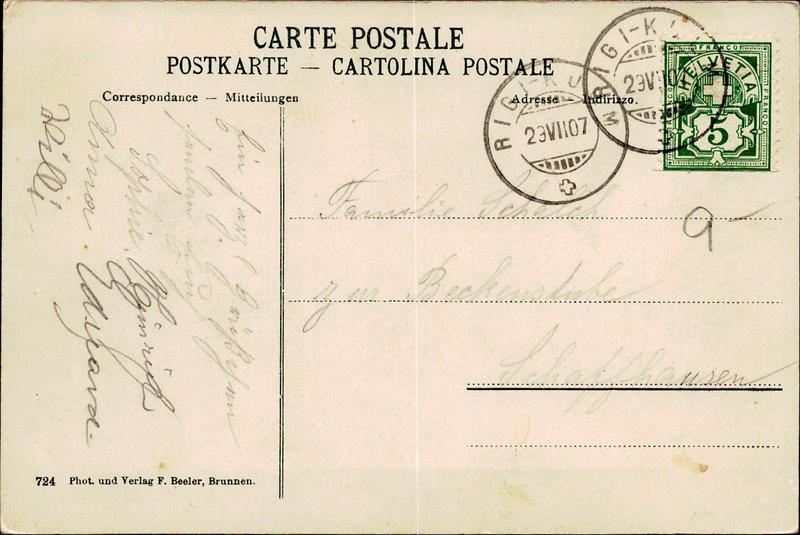 CARTE POSTALE
POSTKARTE — CARTOLINA POSTALE
Correspondance — Mitteilungen
Adresse Indirizzo.
RIGI-KU
29 VII 07
RIGI-K
M
29 VII 0
FRANCO
HELVETIA
FRANCO
5
Familie Schalch
9-
zur Beckenstube
Schaffhausen
Anna
Sophie
Heinrich
Willi
724 Phot. und Verlag F. Beeler, Brunnen.